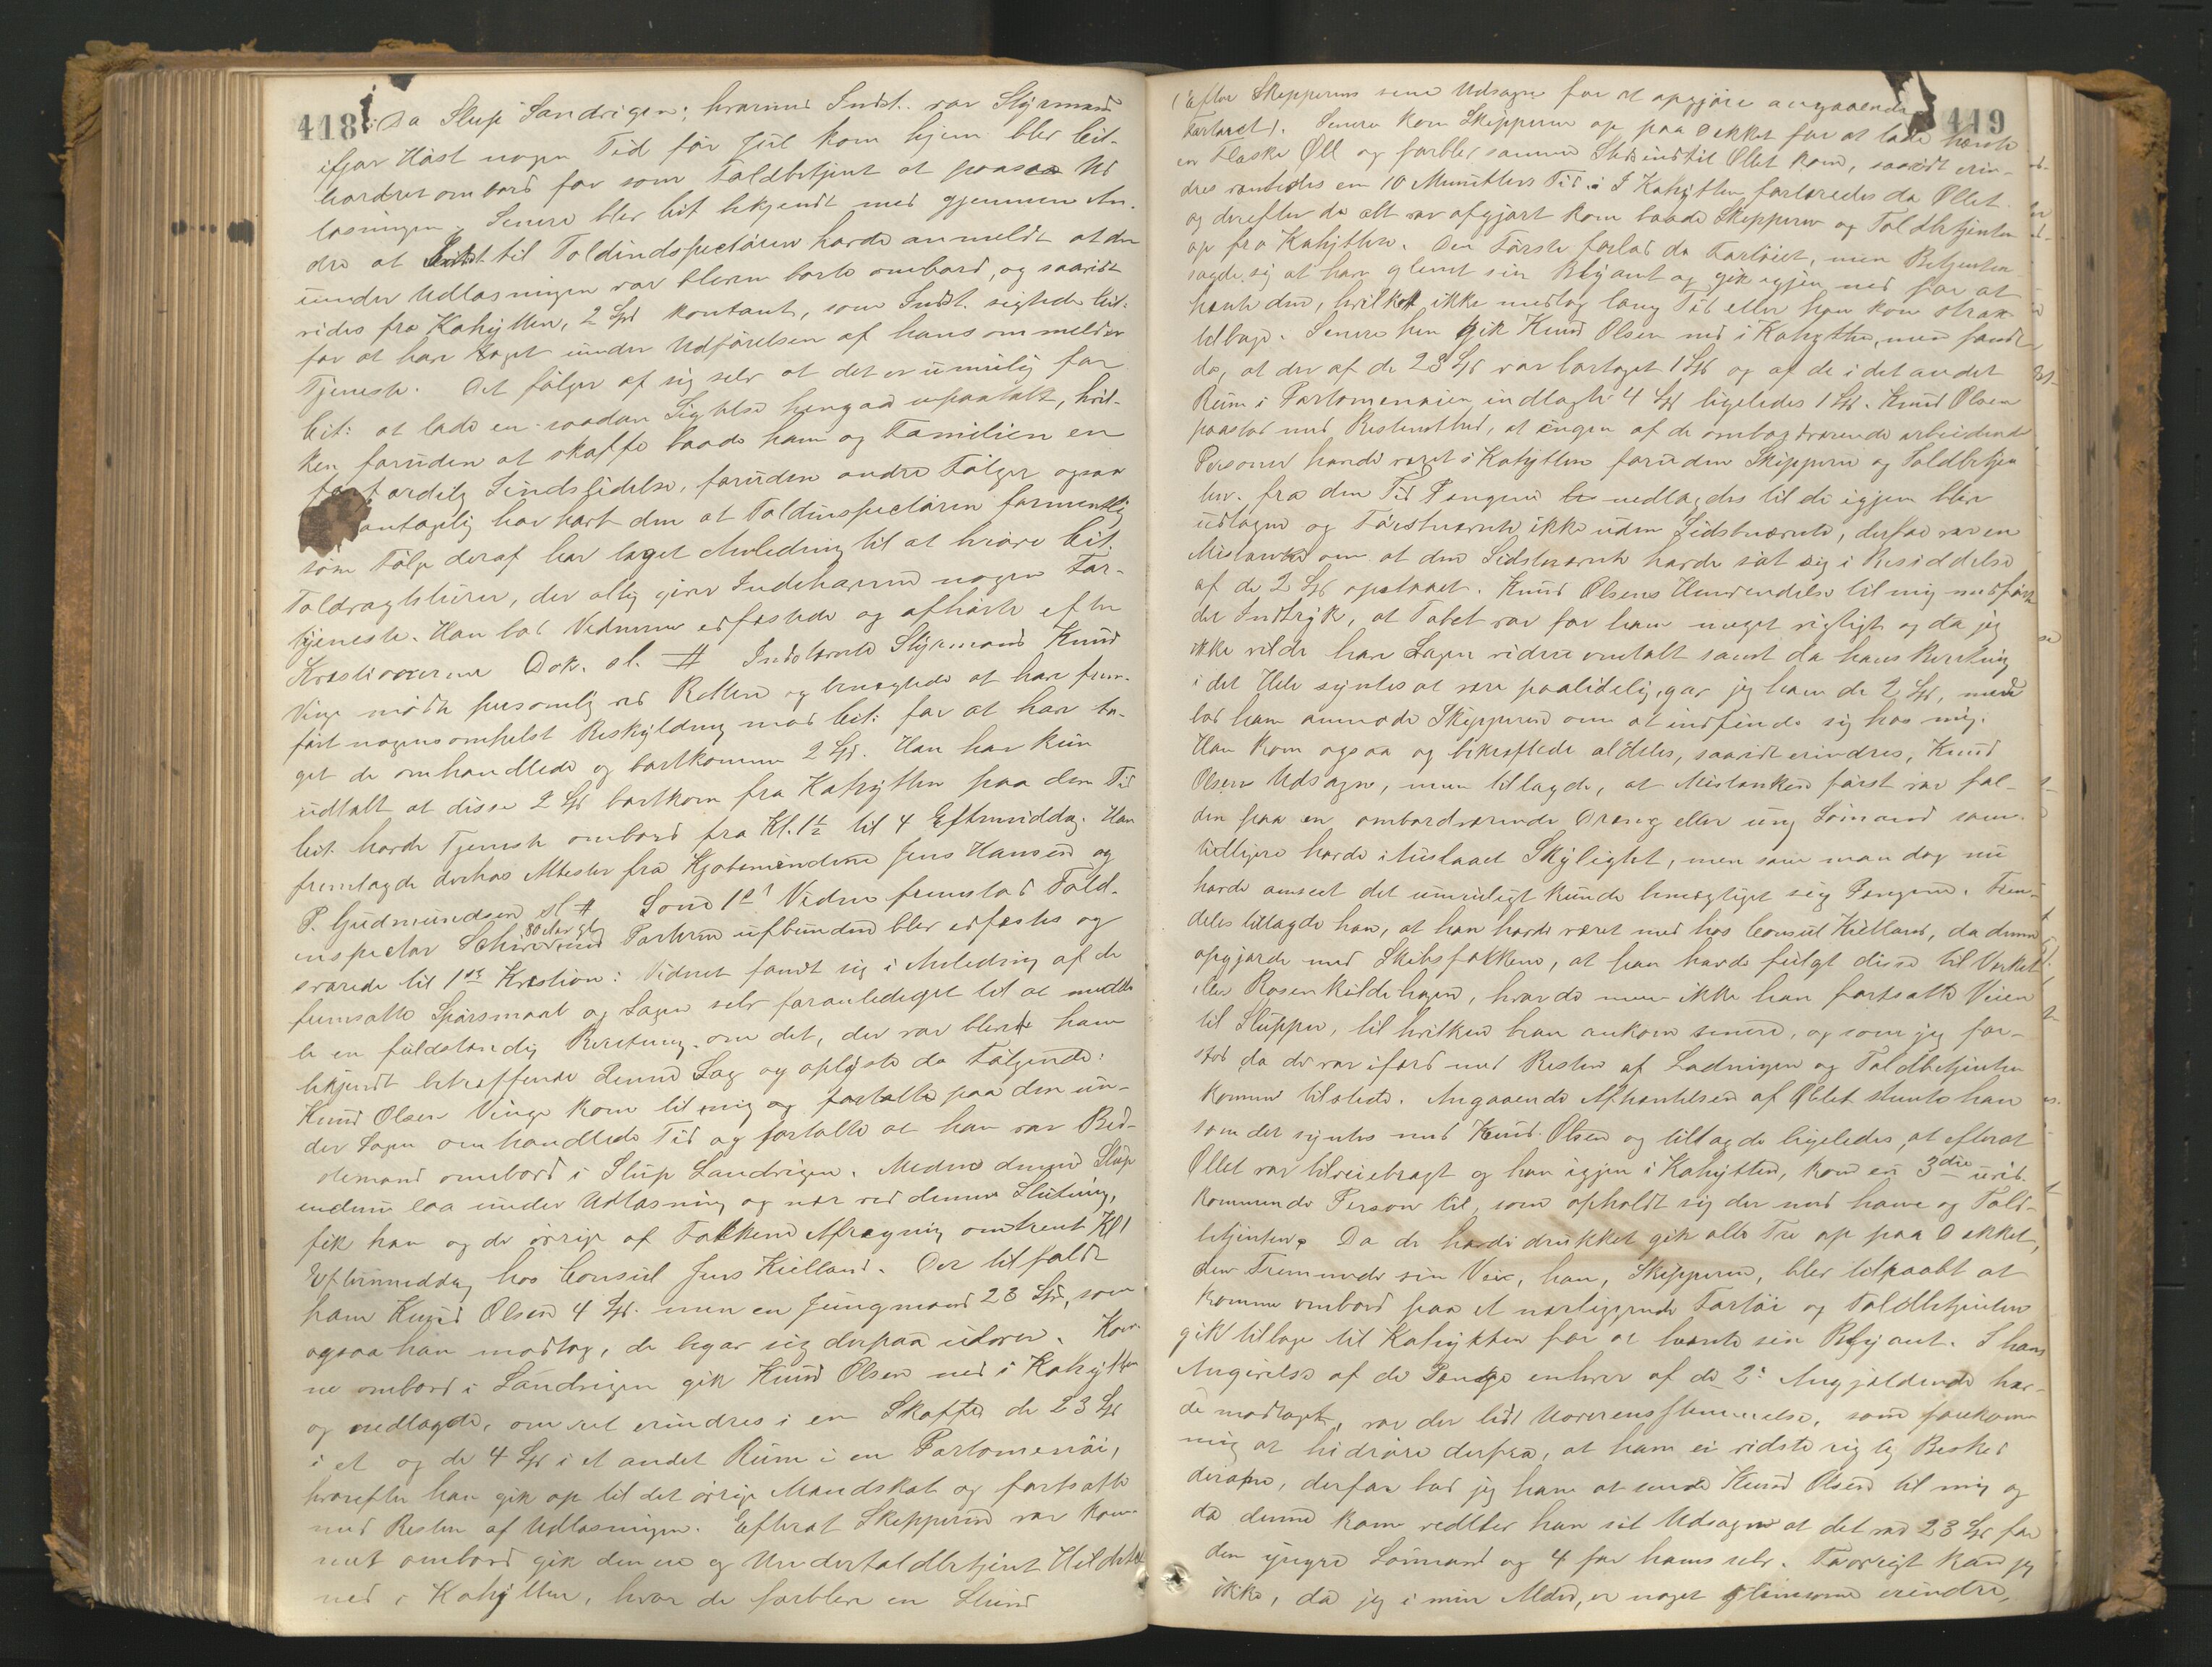 418
Da Slup Landvigen; hvorimed Indst. var Styrmand
ifjor Höst nogen Tid för Jul kom hjem blev Cit.
bordret ombord for som Toldbetjent at paasee Ud
losningen. Senere blev Cit bekjendt med gjennem An-
dre at Indst til Toldindspectören havde anmeldt at der
under Udlosningen var bleven borte ombord, og saavidt
vides fra Kahytten, 2 Spd kontant, som Indst. sigtede Cit.
for at have taget under Udförelsen af hans ommeldte
Tjeneste. Det fölger af sig selv at det er umulig for
Cit: at lade en saadan Sigtelse hengaa upaatalt, hvil-
ken foruden at skaffe baade ham og Familien en
færdig Sindslidelse, foruden andre Fölger ogsaa
antagelig har havt den at Toldinspectören formentlig
som Fölge deraf har taget Anledning til at
Toldvagtsturer, der altid giver Indehaveren nogen For-
tjeneste. Han lod Vidnerne edfæstede og afhörte efter
Kvæstionerne Dok. sl. # Indstævnte Styrmand Knud
Vinge mödte personlig ved Retten og benægtede at have frem-
fört nogensomhelst Beskyldning mod Cit: for at have ta-
get de omhandlede og bortkomne 2 Spd. Han har kun
udtalt at disse 2 Spd bortkom fra Kahytten paa den Tid
Cit. havde Tjeneste ombord fra Kl. 1½ til 4 Eftermiddag. Han
fremlagde derhos Attester fra Kjöbmændene Jens Hansen og
P. Gudmundsen sl # Som 1st Vidne fremstod Told-
inspectör 80 Aar gl Parterne ubunden blev edfæstet og
svarede til 1ste Kvæstion: Vidnet fandt sig i Anledning af de
fremsatte Spörsmaal og Sagen selv foranlediget til at medde
le en fuldstændig Beretning om det, der var blevet ham
bekjendt betræffende denne Sag og oplyste da Fölgende:
Knud Olsen Vinge kom til mig og fortalte paa den un-
der Sagen omhandlede Tid og fortalte at han var Bed-
stemand ombord i Slup Landvigen. Medens denne Slup
endnu laa under Udlosning og nær ved dennes Slutning,
fik han og de övrige af Folkene Afregning omtrent Kl 1
Eftermiddag hos Consul Jens Kielland. Der tilfaldt
ham Knud Olsen 4 Spd. men en Jungmand 23 Spd, som
ogsaa han modtog, de begav sig derpaa udover. Kom-
ne ombord i Landvigen gik Knud Olsen ned i Kahytten
og nedlagde, om ret erindres i en Skuffe de 23 Spd
i et og de 4 Spd i et andet Rum i en Portomonäi,
hvorefter han gik op til det övrige Mandskab og fortsatte
med Resten af Udlosningen. Efterat Skipperen var kom-
met ombord gik denne og Undertoldbetjent
ned i Kahytten, hvor de forblev en Stund
449
(Efter Skipperens sene Udsagn for at opgjöre angaaende
Fartöiet). Senere kom Skipperen op paa Dækket for at lade hænte
en Flaske Öll og forblev samme Sted indtil Öllet kom, saavidt erin-
dres omtrent en 10 Minutters Tid. I Kahytten fortæredes da Öllet
og derefter da alt var afgjort kom baade Skipperen og Toldbetjenten
op fra Kahytten. Den Förste forlod da Fartöiet, men Betjenten
sagde sig at have glemt sin Blyant og gik igjen ned for at
hente den, hvilket ikke medtog lang Tid eller han kom strax
tilbage. Senere hen gik Knud Olsen ned i Kahytten, men fandt
da, at der af de 23 Spd var bortaget 1 Spd og af de i det andet
Rum i Portomonäien indlagte 4 Spd ligeledes 1 Spd. Knud Olsen
paastod med Bestemthed, at ingen af de ombordværende arbeidende
Personer havde været i Kahytten foruden Skipperen og Toldbetjen
ten. fra den Tid Pengene nedlagdes til de igjen blev
udtagne og Förstnævnte ikke uden Sidstnævnte, derfor var en
Mistanke om at den Sidstnævnte havde sat sig i Besiddelse
af de 2 Spd opstaaet. Knud Olsens Henvendelse til mig medförte
det Indtryk, at Tabet var for ham meget vigtigt og da jeg
ikke vilde have Sagen videre omtalt samt da hans Beretning
i det Hele syntes at være paalidelig, gav jeg ham de 2 Spd, men
bad ham anmode Skipperen om at indfinde sig hos mig.
Han kom ogsaa og bekræftede aldeles, saavidt erindres, Knud
Olsens Udsagn, men tillagde, at Mistanken först var fal-
den paa en ombordværende Dreng eller ung Sömand som
tidligere havde itustaaet Skylight, men som man dog nu
havde anseet det umuligt kunde bemægtiget sig Pengene. Frem-
deles tillagde han, at han havde været med hos Consul Kielland, da denne
opgjorde med Skibsfolkene, at han havde fulgt disse til Værket
eller Rosenkildehagen, hvor de men ikke han fortsatte Veien
til Sluppen, til hvilken han ankom senere, og som jeg for-
stod da de var ifærd med Resten af Ladningen og Toldbetjenten
kommen tilstede. Angaaende Afhentelsen af Öllet stemte han
som det syntes med Knud Olsen og tillagde ligeledes, at efterat
Öllet var tilveiebragt og han igjen i Kahytten, kom en 3die uved-
kommende Person til, som opholdt sig der med ham og Told-
betjenten. Da de havde drukket gik alle Tre op paa Dækket,
den Fremmede sin Vei, han, Skipperen, blev tilraabt at
komme ombord paa et nærliggende Fartöi og Toldbetjenten
gik tilbage til Kahytten for at hænte sin Blyant. I hans
Angivelse af de Penge enhver af de 2: Angjældende hav-
de modtaget, var der lidt Uoverensstemmelse, som forekom
mig at hidröre derfra, at ham ei vidste rigtig Besked
derom, derfor bad jeg ham at sende Knud Olsen til mig og
da denne kom vedblev han sit Udsagn at det var 23 Spd for
den yngre Sömand og 4 for ham selv. Forövrigt kan jeg
ikke, da jeg i min Alder, er noget glemsom erindre,